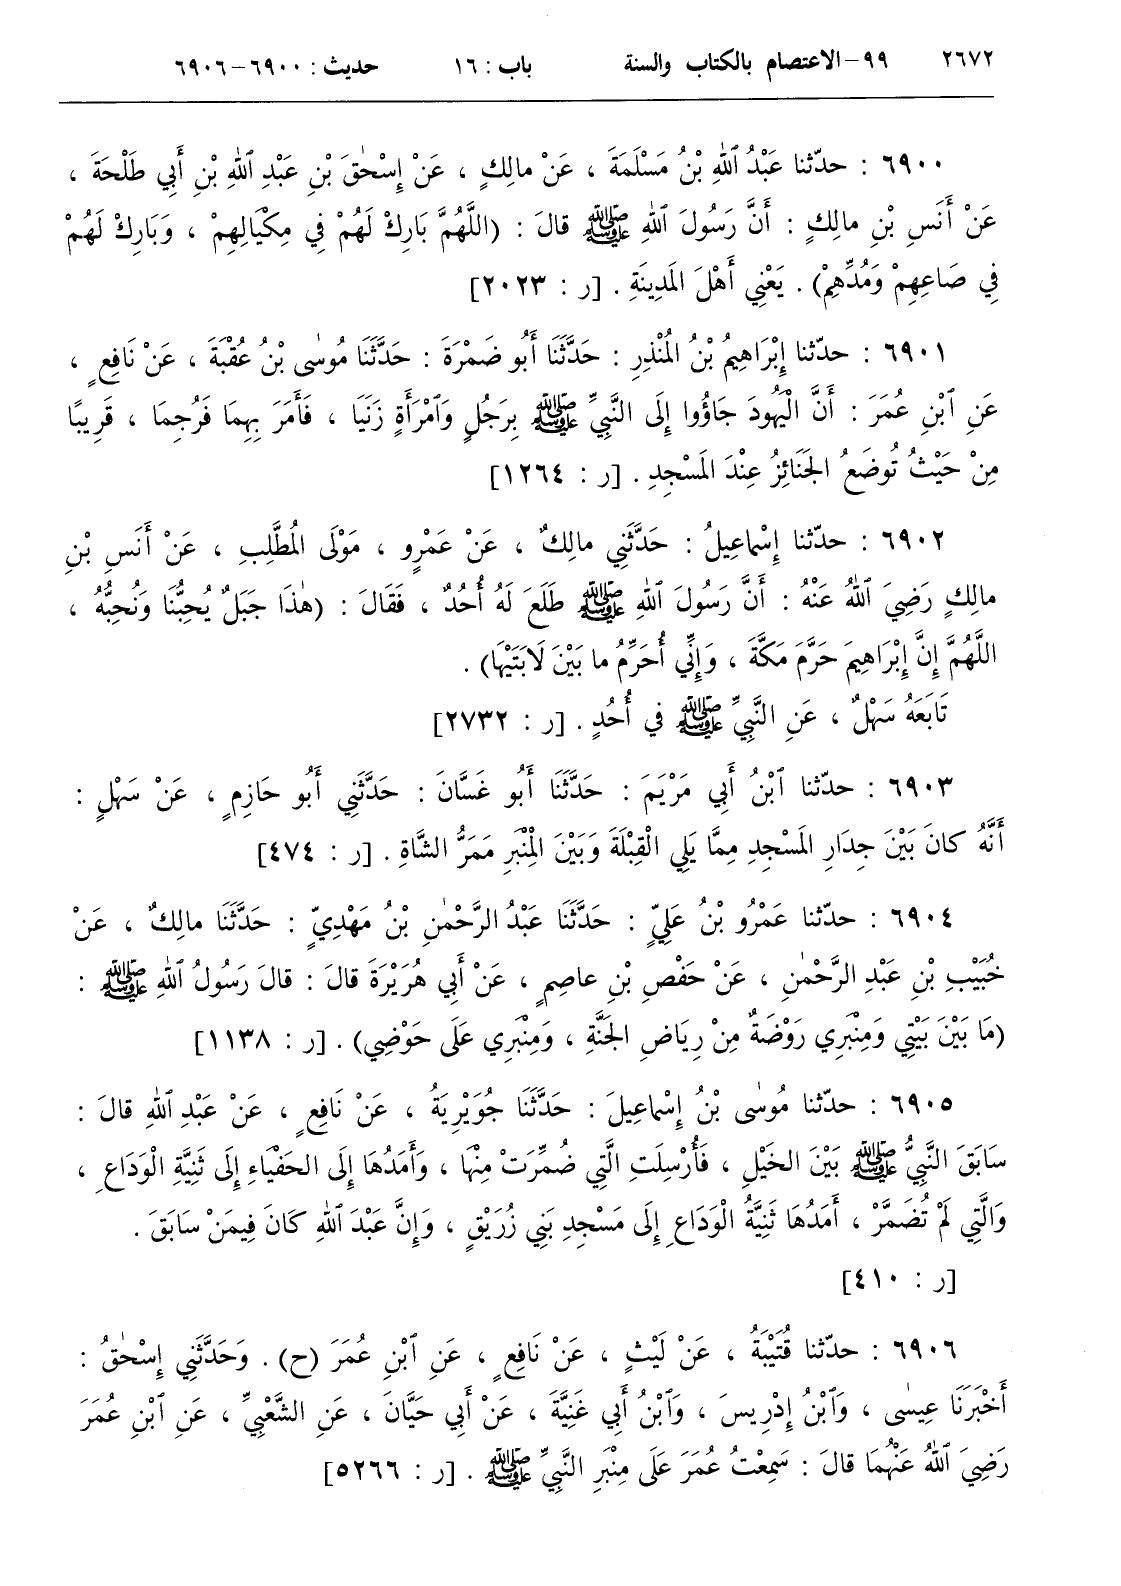 ٢٦٧٢ ٩٩-الاعتصام بالكتاب والسنة باب : ١٦ حديث : ٦٩٠٠-٦٩٠٦
٦٩٠٠ : حدّثنا عَبْدُ ٱللهِ بْنُ مَسْلَمَةَ ، عَنْ مالِكٍ ، عَنْ إِسْحٰقَ بْنِ عَبْدِ ٱللهِ بْنِ أَبِي طَلْحَةَ ،
عَنْ أَنَسِ بْنِ مالِكٍ : أَنَّ رَسُولَ ٱللهِ ﷺ قالَ : (اللَّهُمَّ بَارِكْ لَهُمْ فِي مِكْيَالِهِمْ ، وَبَارِكْ لَهُمْ
فِي صَاعِهِمْ وَمُدِّهِمْ) . يَعْنِي أَهْلَ المَدِينَةِ . [ر : ٢٠٢٣]
٦٩٠١ : حدّثنا إِبْرَاهِيمُ بْنُ المُنْذِرِ : حَدَّثَنَا أَبُو ضَمْرَةَ : حَدَّثَنَا مُوسٰى بْنُ عُقْبَةَ ، عَنْ نَافِعٍ ،
عَنِ ٱبْنِ عُمَرَ : أَنَّ الْيَهُودَ جَاؤُوا إِلَى النَّبِيِّ ﷺ بِرَجُلٍ وَٱمْرَأَةٍ زَنَيَا ، فَأَمَرَ بِهِمَا فَرُجِمَا ، قَرِيبًا
مِنْ حَيْثُ تُوضَعُ الجَنَائِزُ عِنْدَ المَسْجِدِ . [ر : ١٢٦٤]
٦٩٠٢ : حدّثنا إِسْماعِيلُ : حَدَّثَنِي مالِكٌ ، عَنْ عَمْرٍو ، مَوْلَى المُطَّلِبِ ، عَنْ أَنَسِ بْنِ
مالِكٍ رَضِيَ ٱللهُ عَنْهُ : أَنَّ رَسُولَ ٱللهِ ﷺ طَلَعَ لَهُ أُحُدٌ ، فَقَالَ : (هٰذَا جَبَلٌ يُحِبُّنَا وَنُحِبُّهُ ،
اللَّهُمَّ إِنَّ إِبْرَاهِيمَ حَرَّمَ مَكَّةَ ، وَإِنِّي أُحَرِّمُ ما بَيْنَ لَابَتَيْهَا) .
تَابَعَهُ سَهْلٌ ، عَنِ النَّبِيِّ ﷺ في أُحُدٍ . [ر : ٢٧٣٢]
٦٩٠٣ : حدّثنا ٱبْنُ أَبِي مَرْيَمَ : حَدَّثَنَا أَبُو غَسَّانَ : حَدَّثَنِي أَبُو حَازِمٍ ، عَنْ سَهْلٍ :
أَنَّهُ كانَ بَيْنَ جِدَارِ المَسْجِدِ مِمَّا يَلِي الْقِبْلَةَ وَبَيْنَ الْمِنْبَرِ مَمَرُّ الشَّاةِ . [ر : ٤٧٤]
٦٩٠٤ : حدّثنا عَمْرُو بْنُ عَلِيٍّ : حَدَّثَنَا عَبْدُ الرَّحْمٰنِ بْنُ مَهْدِيٍّ : حَدَّثَنَا مالِكٌ ، عَنْ
خُبَيْبِ بْنِ عَبْدِ الرَّحْمٰنِ ، عَنْ حَفْصِ بْنِ عاصِمٍ ، عَنْ أَبِي هُرَيْرَةَ قالَ : قالَ رَسُولُ ٱللهِ ﷺ :
(مَا بَيْنَ بَيْتِي وَمِنْبَرِي رَوْضَةٌ مِنْ رِيَاضِ الجَنَّةِ ، وَمِنْبَرِي عَلَى حَوْضِي) . [ر : ١١٣٨]
٦٩٠٥ : حدّثنا مُوسٰى بْنُ إِسْماعِيلَ : حَدَّثَنَا جُوَيْرِيَةُ ، عَنْ نَافِعٍ ، عَنْ عَبْدِ ٱللهِ قالَ :
سَابَقَ النَّبِيُّ ﷺ بَيْنَ الخَيْلِ ، فَأُرْسِلَتِ الَّتِي ضُمِّرَتْ مِنْهَا ، وَأَمَدُهَا إِلَى الحَفْيَاءِ إِلَى ثَنِيَّةِ الْوَدَاعِ ،
وَالَّتِي لَمْ تُضَمَّرْ ، أَمَدُهَا ثَنِيَّةُ الْوَدَاعِ إِلَى مَسْجِدِ بَنِي زُرَيْقٍ ، وَإِنَّ عَبْدَ ٱللهِ كانَ فِيمَنْ سَابَقَ .
[ر : ٤١٠]
٦٩٠٦ : حدّثنا قُتَيْبَةُ ، عَنْ لَيْثٍ ، عَنْ نَافِعٍ ، عَنِ ٱبْنِ عُمَرَ (ح) . وَحَدَّثَنِي إِسْحٰقُ :
أَخْبَرَنَا عِيسٰى ، وَٱبْنُ إِدْرِيسَ ، وَٱبْنُ أَبِي غَنِيَّةَ ، عَنْ أَبِي حَيَّانَ ، عَنِ الشَّعْبِيِّ ، عَنِ ٱبْنِ عُمَرَ
رَضِيَ ٱللهُ عَنْهُمَا قالَ : سَمِعْتُ عُمَرَ عَلَى مِنْبَرِ النَّبِيِّ ﷺ . [ر : ٥٢٦٦]